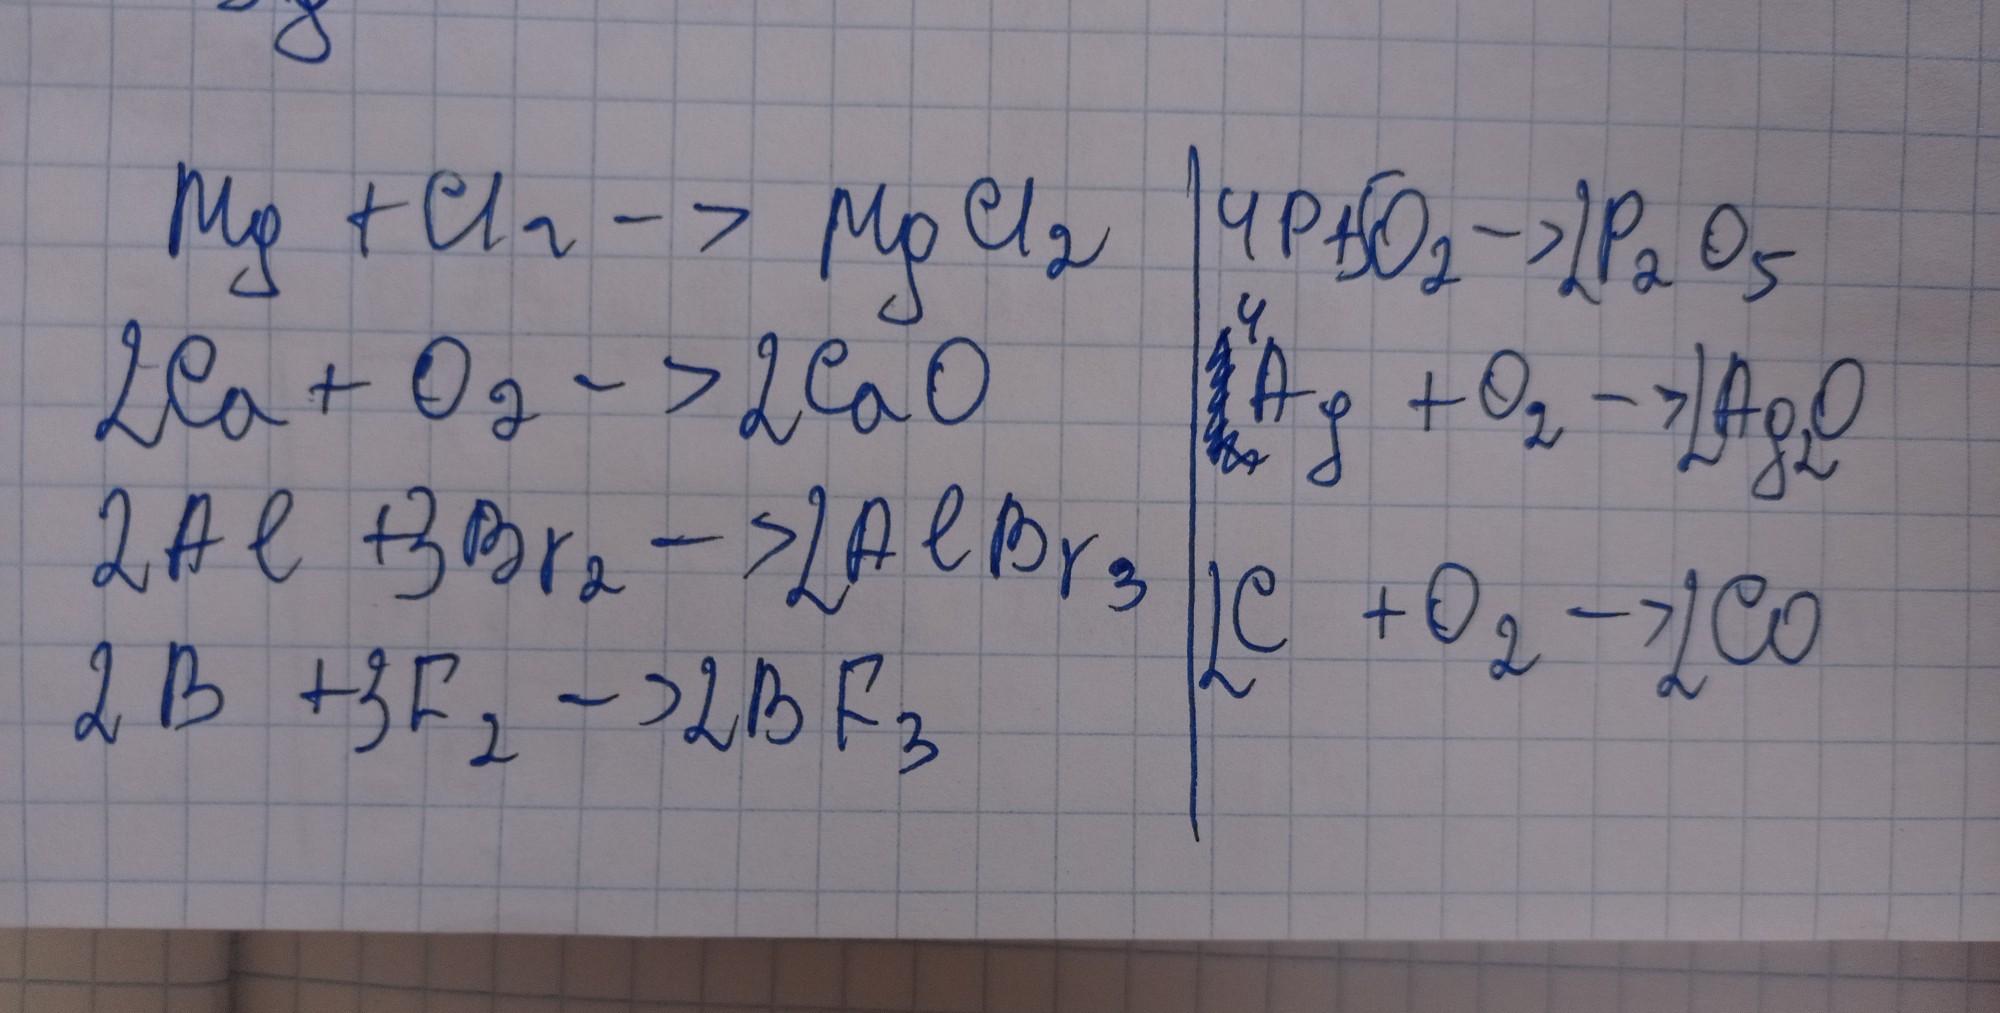 Mg + Cl2 -> MgCl2
2Ca + O2 -> 2CaO
2Al + 3Br2 -> 2AlBr3
2B + 3F2 -> 2BF3
4P + 5O2 -> 2P2O5
4Ag + O2 -> 2Ag2O
2C + O2 -> 2CO